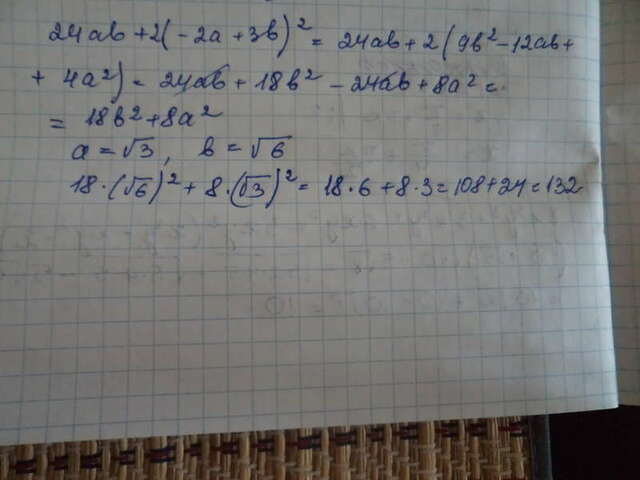 24ab + 2(-2a + 3b)² = 24ab + 2(9b² - 12ab +
+ 4a²) = 24ab + 18b² - 24ab + 8a² =
= 18b² + 8a²
a = √3, b = √6
18·(√6)² + 8·(√3)² = 18·6 + 8·3 = 108 + 24 = 132